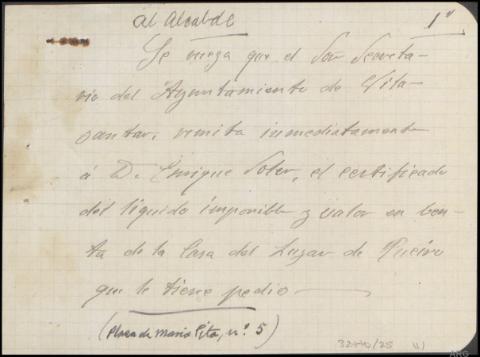 al Alcalde 1º
Se ruega que el Sor Secreta-
rio del Ayuntamiento de Vila-
santar, remita inmediatamente
á D. Enrique Soler, el certificado
del líquido imponible y valor en ben-
ta de la Casa del Lugar de
que le tiene pedio
(Plaza de María Pita, nº 5)